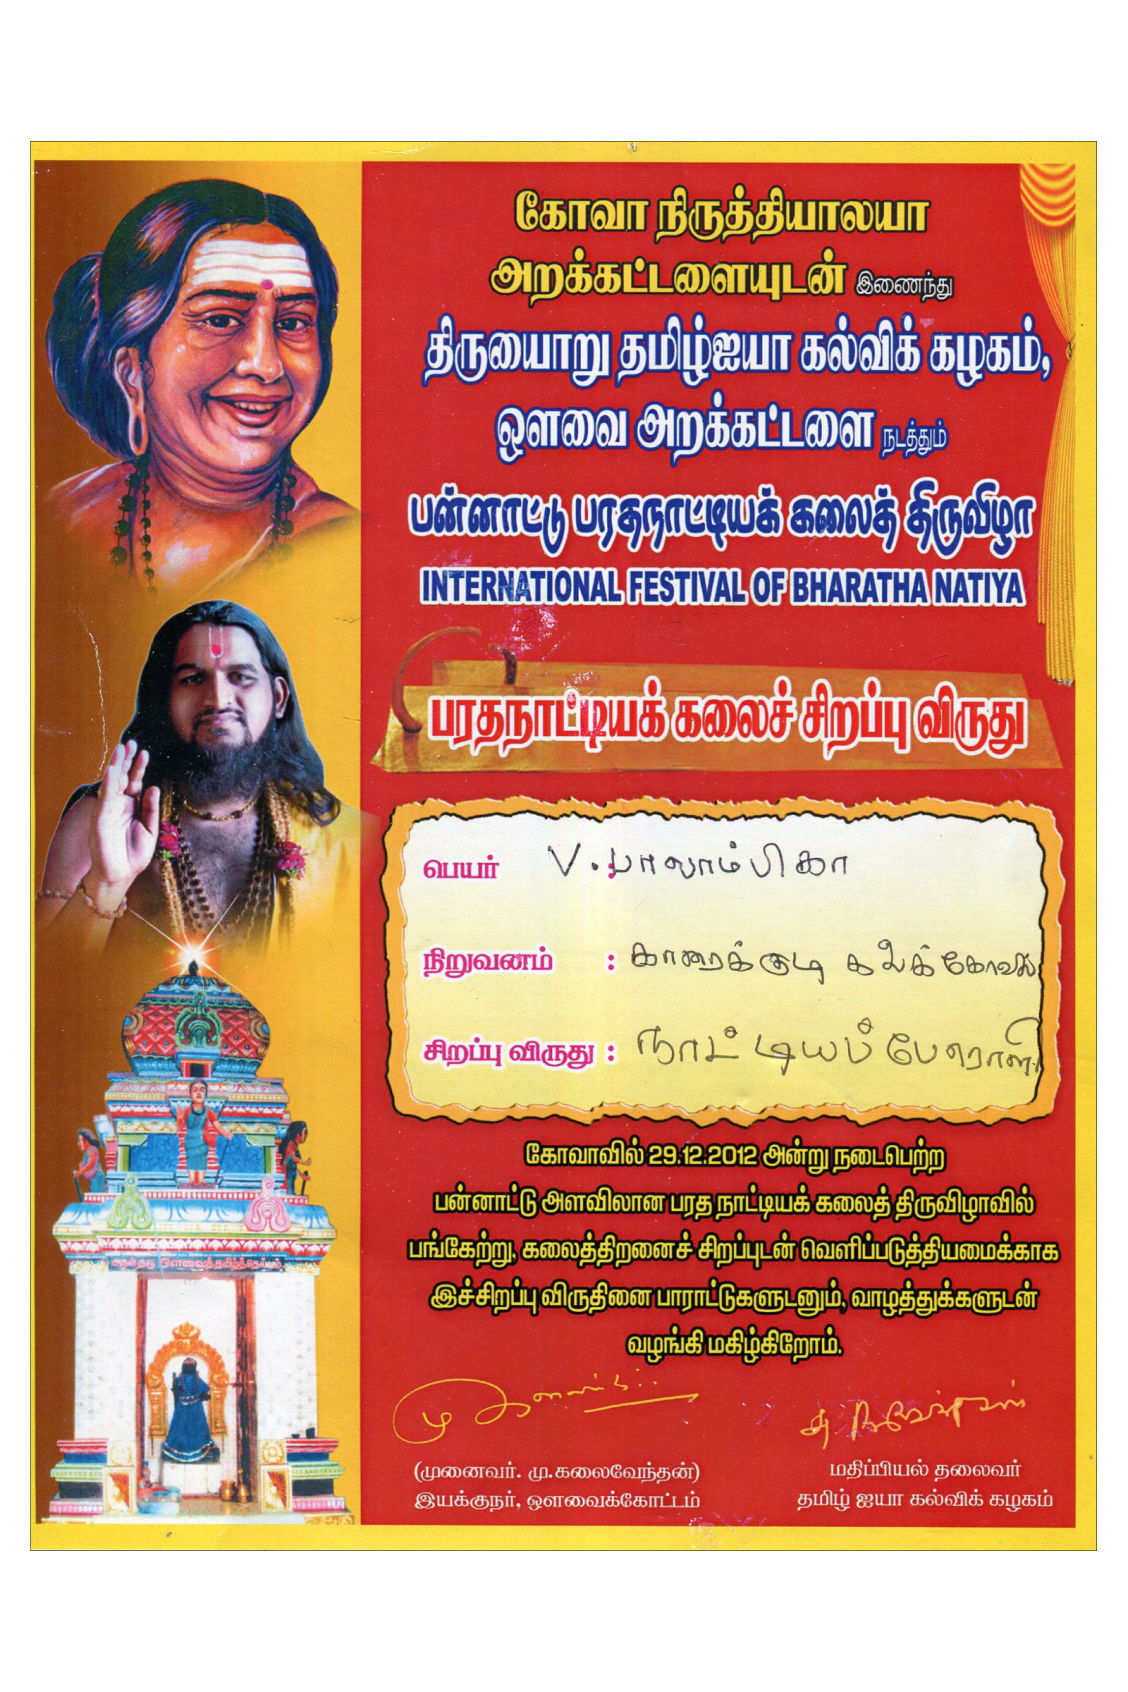 கோவா நிருத்தியாலயா
அறக்கட்டளையுடன் இணைந்து
திருயைாறு தமிழ்ஐயா கல்விக் கழகம்,
ஔவை அறக்கட்டளை நடத்தும்
பன்னாட்டு பரதநாட்டியக் கலைத் திருவிழா
INTERNATIONAL FESTIVAL OF BHARATHA NATIYA
பரதநாட்டியக் கலைச் சிறப்பு விருது
பெயர் : V. பாலாம்பிகா
நிறுவனம் : காரைக்குடி
சிறப்பு விருது : நாட்டியப் பேரொளி
கோவாவில் 29.12.2012 அன்று நடைபெற்ற
பன்னாட்டு அளவிலான பரத நாட்டியக் கலைத் திருவிழாவில்
பங்கேற்று, கலைத்திறனைச் சிறப்புடன் வெளிப்படுத்தியமைக்காக
இச்சிறப்பு விருதினை பாராட்டுகளுடனும், வாழத்துக்களுடன்
வழங்கி மகிழ்கிறோம்.
(முனைவர். மு.கலைவேந்தன்)
இயக்குநர், ஔவைக்கோட்டம்
மதிப்பியல் தலைவர்
தமிழ் ஐயா கல்விக் கழகம்